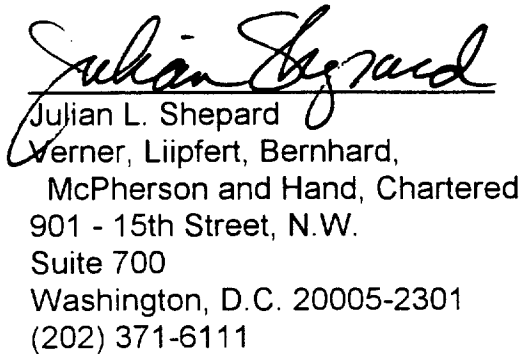 Julian Shepard
Julian L. Shepard
Verner, Liipfert, Bernhard,
McPherson and Hand, Chartered
901 - 15th Street, N.W.
Suite 700
Washington, D.C. 20005-2301
(202) 371-6111